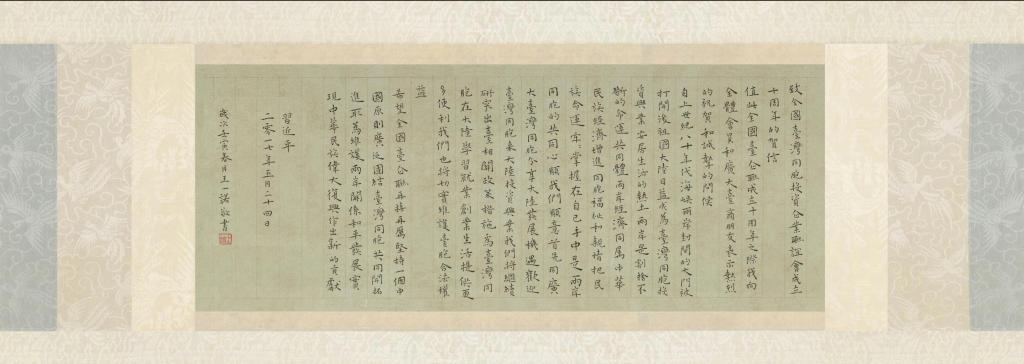 致全國臺灣同胞投資企業聯誼會成立
十周年的賀信
值此全國臺企聯成立十周年之際我向
全體會員和廣大臺商朋友表示熱烈
的祝賀和誠摯的問候
自上世紀八十年代海峽兩岸封閉的大門被
打開後祖國大陸日益成為臺灣同胞投
資興業安居生活的熱土兩岸是割捨不
斷的命運共同體兩岸經濟同屬中華
民族經濟增進同胞福祉和親情把民
族命運牢牢掌握在自己手中是兩岸
同胞的共同心願我們願意首先同廣
大臺灣同胞分享大陸發展機遇歡迎
臺灣同胞來大陸投資興業我們將繼續
研究出臺相關政策措施為臺灣同
胞在大陸學習就業創業生活提供更
多便利我們也將切實維護臺胞合法權
益
希望全國臺企聯再接再厲堅持一個中
國原則廣泛團結臺灣同胞共同開拓
進取為維護兩岸關係和平發展實
現中華民族偉大復興作出新的貢獻
習近平
二零一七年五月二十四日
歲次壬寅春月王一諾敬書